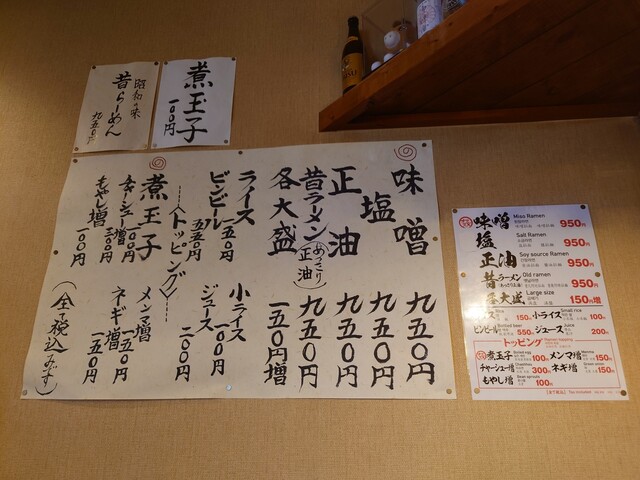 昭和の味
昔らーめん
九五〇円
煮玉子
一〇〇円
味噌 九五〇円
塩 九五〇円
正油 九五〇円
昔ラーメン(あっさり正油) 九五〇円
各大盛 一五〇円増
ライス 一五〇円
小ライス 一〇〇円
ビンビール 五五〇円
ジュース 二〇〇円
〈トッピング〉
煮玉子 一〇〇円
メンマ増 一五〇円
チャーシュー増 三〇〇円
ネギ増 一五〇円
もやし増 一〇〇円
(全て税込みです)
味噌 Miso Ramen 950円
塩 Salt Ramen 950円
正油 Soy source Ramen 950円
昔ラーメン Old ramen 950円
各大盛 Large size 150円増
150円 小ライス Small rice 100円
ビンビール Bottled beer 550円 ジュース Juice 200円
トッピング
煮玉子 Boiled egg 100円 メンマ増 150円
チャーシュー増 300円 ネギ増 150円
もやし増 Bean sprouts 100円